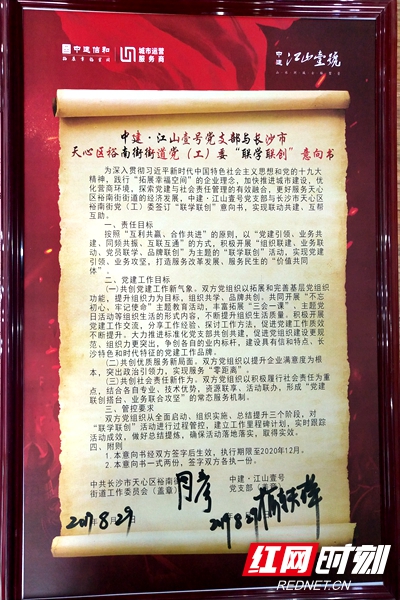 中建信和
城市运营
服务商
中建
江山壹號
中建·江山壹号党支部与长沙市
天心区裕南街街道党（工）委“联学联创”意向书
为深入贯彻习近平新时代中国特色社会主义思想和党的十九大
精神，践行“拓展幸福空间”的企业理念，加快推进城市建设，优
化营商环境，探索党建与社会责任管理的有效融合，更好服务天心
区裕南街街道的经济发展，中建·江山壹号党支部与长沙市天心区
裕南街党（工）委签订“联学联创”意向书，实现联动共建、互帮
互助。
一、责任目标
按照“互利共赢、合作共进”的原则，以“党建引领、业务共
建、同频共振、互联互通”的方式，积极开展“组织联建、业务联
动、党员联学、品牌联创”为主题的“联学联创”活动，实现党建
引领、业务攻坚，打造服务改革发展、服务民生的“价值共同
体”。
二、党建工作目标
（一）共创党建工作新气象。双方党组织以拓展和完善基层党组织
功能，提升组织力为目标，组织共学、品牌共创。共同开展“不忘
初心、牢记使命”主题教育活动，丰富拓展“三会一课”、主题党
日活动等组织生活的形式内容，不断提升组织生活质量，积极开展
党建工作交流，分享工作经验，探讨工作方法，促进党建工作质效
不断提升。大力推进标准化党支部共创共建，促进党组织建设更规
范、组织力更突出，争创各自的业内标杆，建设具有信和特点、长
沙特色和时代特征的党建工作品牌。
（二）共创优质服务新局面。双方党组织以提升企业满意度为根
本，突出政治引领力，实现服务“零距离”。
（三）共创社会责任新作为。双方党组织以积极履行社会责任为重
点，结合各自专业、技术优势，资源联享、活动联办，形成“党建
联创搭台、业务联合攻坚”的常态服务机制。
三、管控要求
双方党组织从全面启动、组织实施、总结提升三个阶段，对
“联学联创”活动进行过程管控，建立工作里程碑计划，实时跟踪
活动成效，做好总结提炼，确保活动落地落实，取得实效。
四、附则
1.本意向书经双方签字后生效，执行期限至2020年12月。
2.本意向书一式两份，签字双方各执一份。
中共长沙市天心区裕南街
街道工作委员会（盖章）
中建·江山壹号
党支部（盖章）
2019.8.29
2019.8.29
红网时刻
REDNET.CN